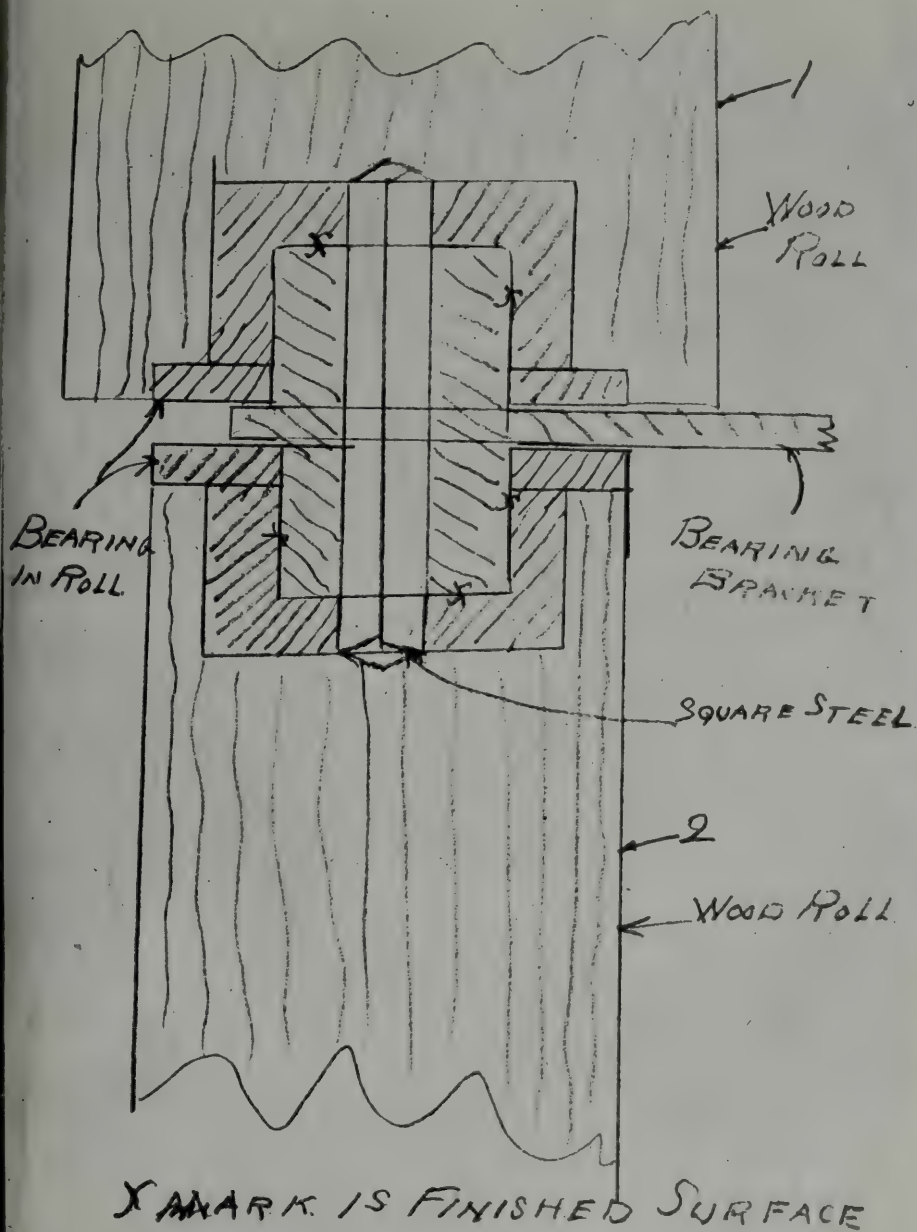 1
WOOD
ROLL
BEARING
IN ROLL
BEARING
BRACKET
SQUARE STEEL
2
WOOD ROLL
X MARK IS FINISHED SURFACE